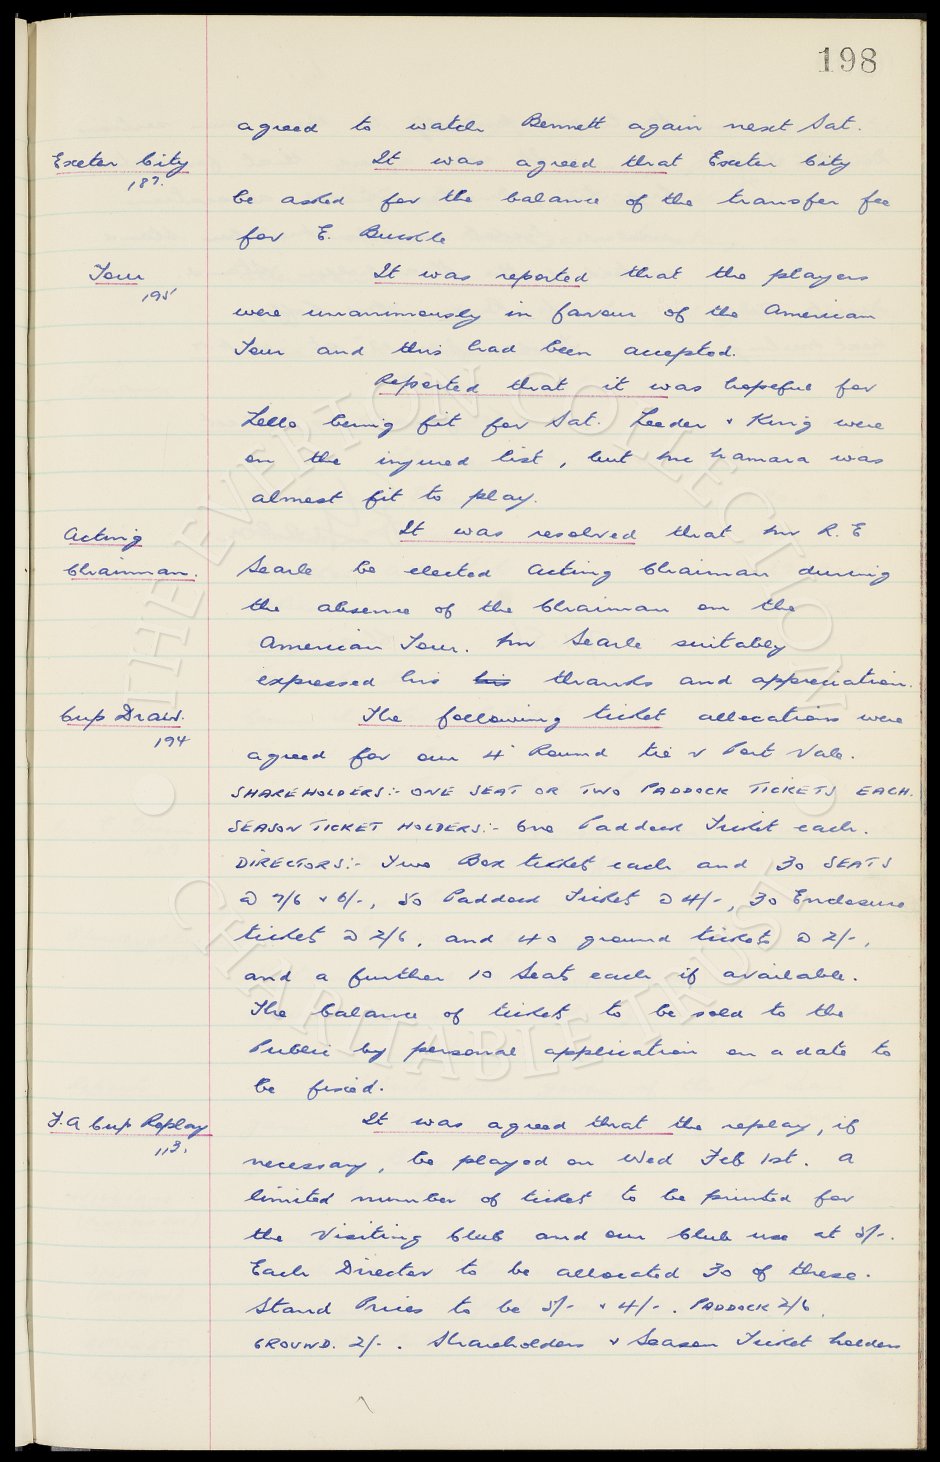 198
agreed to watch Bennett again next Sat.
Exeter City It was agreed that Exeter City
187.
be asked for the balance of the transfer fee
for E. Buckle
Tour It was reported that the players
195
were unanimously in favour of the American
Tour and this had been accepted.
Reported that it was hopeful for
Lello being fit for Sat. Leeder & King were
on the injured list, but Mc Namara was
almost fit to play.
Acting It was resolved that Mr R. E
Chairman. Searle be elected Acting Chairman during
the absence of the Chairman on the
American Tour. Mr Searle suitably
expressed his his thanks and appreciation.
Cup Draw. The following ticket allocations were
194
agreed for our 4 Round tie v Port Vale.
SHAREHOLDERS:- ONE SEAT OR TWO PADDOCK TICKETS EACH.
SEASON TICKET HOLDERS:- One Paddock Ticket each.
DIRECTORS:- Two Box tickets each and 30 SEATS
@ 7/6 & 6/-, 50 Paddock Tickets @ 4/-, 30 Enclosure
tickets @ 2/6, and 40 ground tickets @ 2/-,
and a further 10 Seats each if available.
The balance of tickets to be sold to the
Public by personal application on a date to
be fixed.
F.A Cup Replay It was agreed that the replay, if
113.
necessary, be played on Wed Feb 1st. A
limited number of tickets to be printed for
the Visiting Club and our Club use at 5/-.
Each Director to be allocated 30 of these.
Stand Prices to be 5/- & 4/-. PADDOCK 2/6.
GROUND. 2/-. Shareholders & Season Ticket holders
THE EVERTON COLLECTION
CHARITABLE TRUST